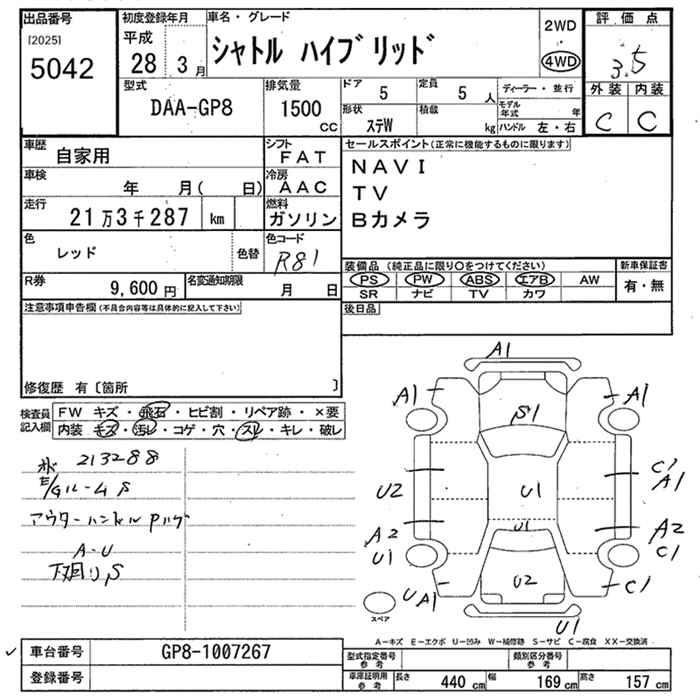 出品番号
[2025]
5042
初度登録年月
平成
28 3月
車名・グレード
シャトル ハイブリッド
2WD
4WD
評価点
3.5
外装 内装
C C
型式
DAA-GP8
排気量
1500
CC
ドア 5
定員 5人
形状 ステW
積載 kg
ディーラー・並行
モデル年式 年
ハンドル 左・右
車歴
自家用
シフト
FAT
車検
年 月( 日)
冷房
AAC
走行
21万3千287 km
燃料
ガソリン
色
レッド
色替
色コード
R81
R券
9,600円
名変通知期限
月 日
セールスポイント(正常に機能するものに限ります)
NAVI
TV
Bカメラ
装備品(純正品に限り○をつけてください)
PS PW ABS エアB AW
SR ナビ TV カワ
新車保証書
有・無
後日品
注意事項申告欄(不具合内容等は具体的に記入して下さい)
修復歴 有〔箇所 〕
検査員記入欄
FW キズ・飛石・ヒビ割・リペア跡・×要
内装 キズ・汚レ・コゲ・穴・スレ・キレ・破レ
213288
アウターハンドル
A-U
下廻りS
A1
A1 S1 A1
U2 U1 C1
A1
A2 U1 A2
U1 C1
U A1 U2 C1
U1
スペア
A-キズ E-エクボ U-凹み W-補修跡 S-サビ C-腐食 XX-交換済
車台番号
GP8-1007267
登録番号
型式指定番号
参考
類別区分番号
参考
車庫証明用
参考
長さ 440 cm
幅 169 cm
高さ 157 cm